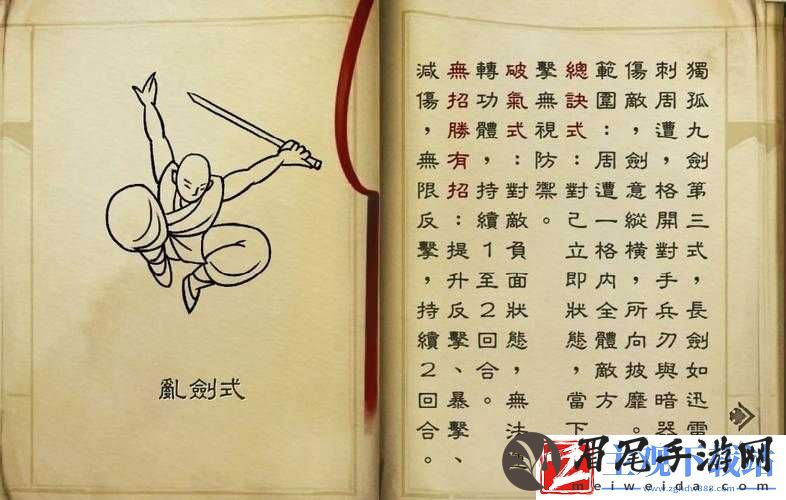 亂劍式
獨孤九劍第三式，長劍如迅雷
刺周遭，格開對手兵刃與暗器
傷敵，劍意縱橫，所向披靡。
範圍：周遭一格內全體敵方
總訣式：對己立即狀態，當下
擊無視防禦。
破氣式：對敵負面狀態，無法
轉功體，持續1至2回合。
無招勝有招：提升反擊、暴擊、
減傷，無限反擊，持續2回合。
眉尾手游网
meiweida.com